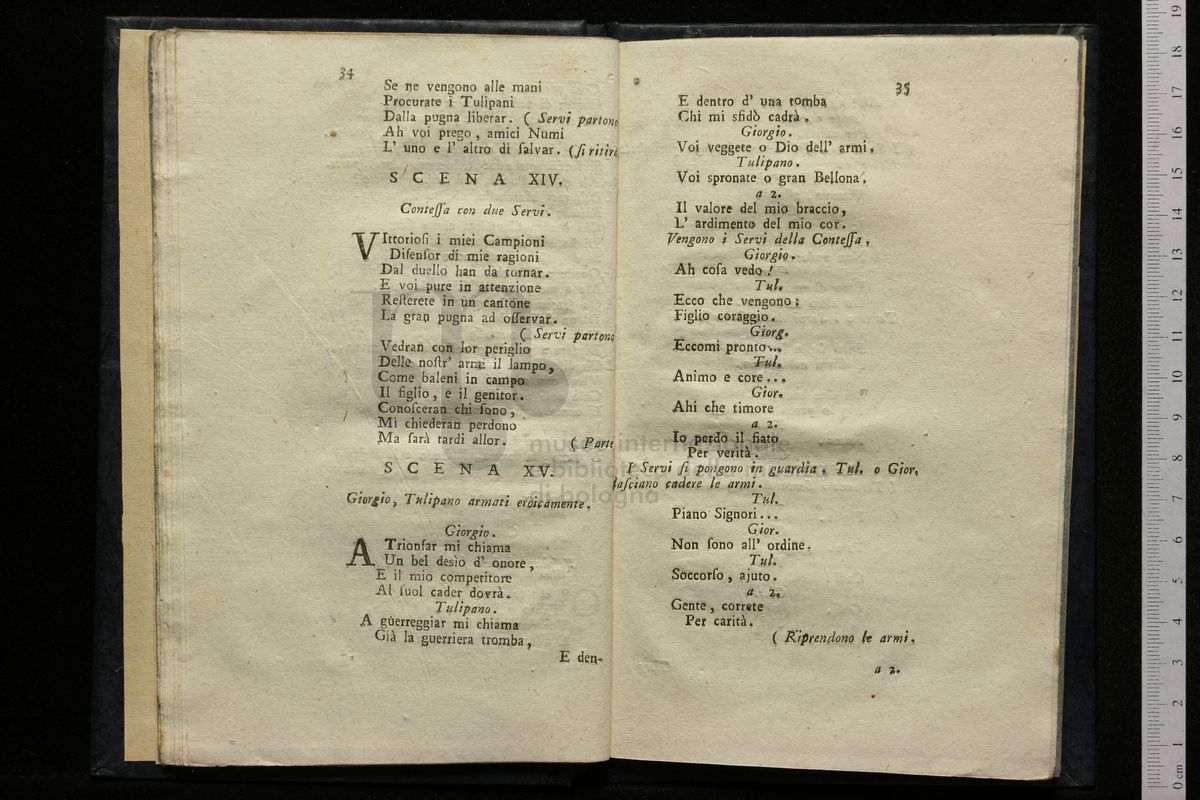 34
Se ne vengono alle mani
Procurate i Tulipani
Dalla pugna liberar. ( Servi partono
Ah voi prego, amici Numi
L' uno e l' altro di ſalvar. (ſi ritira
SCENA XIV.
Conteſſa con due Servi.
VIttorioſi i miei Campioni
Difenſor di mie ragioni
Dal duello han da tornar.
E voi pure in attenzione
Reſterete in un cantone
La gran pugna ad oſſervar.
( Servi partono
Vedran con lor periglio
Delle noſtr' armi il lampo,
Come baleni in campo
Il figlio, e il genitor.
Conoſceran chi ſono,
Mi chiederan perdono
Ma ſarà tardi allor. ( Parte
SCENA XV.
Giorgio, Tulipano armati eroicamente.
Giorgio.
A Trionfar mi chiama
Un bel desìo d' onore,
E il mio competitore
Al ſuol cader dovrà.
Tulipano.
A guerreggiar mi chiama
Già la guerriera tromba,
E den-
35
E dentro d' una tomba
Chi mi sfidò cadrà.
Giorgio.
Voi veggete o Dio dell' armi.
Tulipano.
Voi spronate o gran Bellona,
a 2.
Il valore del mio braccio,
L' ardimento del mio cor.
Vengono i Servi della Conteſſa.
Giorgio.
Ah coſa vedo!
Tul.
Ecco che vengono:
Figlio coraggio.
Giorg.
Eccomi pronto...
Tul.
Animo e core...
Gior.
Ahi che timore
a 2.
Io perdo il fiato
Per verità.
I Servi ſi pongono in guardia. Tul. o Gior.
laſciano cadere le armi.
Tul.
Piano Signori...
Gior.
Non ſono all' ordine.
Tul.
Soccorſo, ajuto.
a 2.
Gente, correte
Per carità.
( Riprendono le armi.
a 2.
museo internazionale
e biblioteca
di bologna
0 cm 1 2 3 4 5 6 7 8 9 10 11 12 13 14 15 16 17 18 19